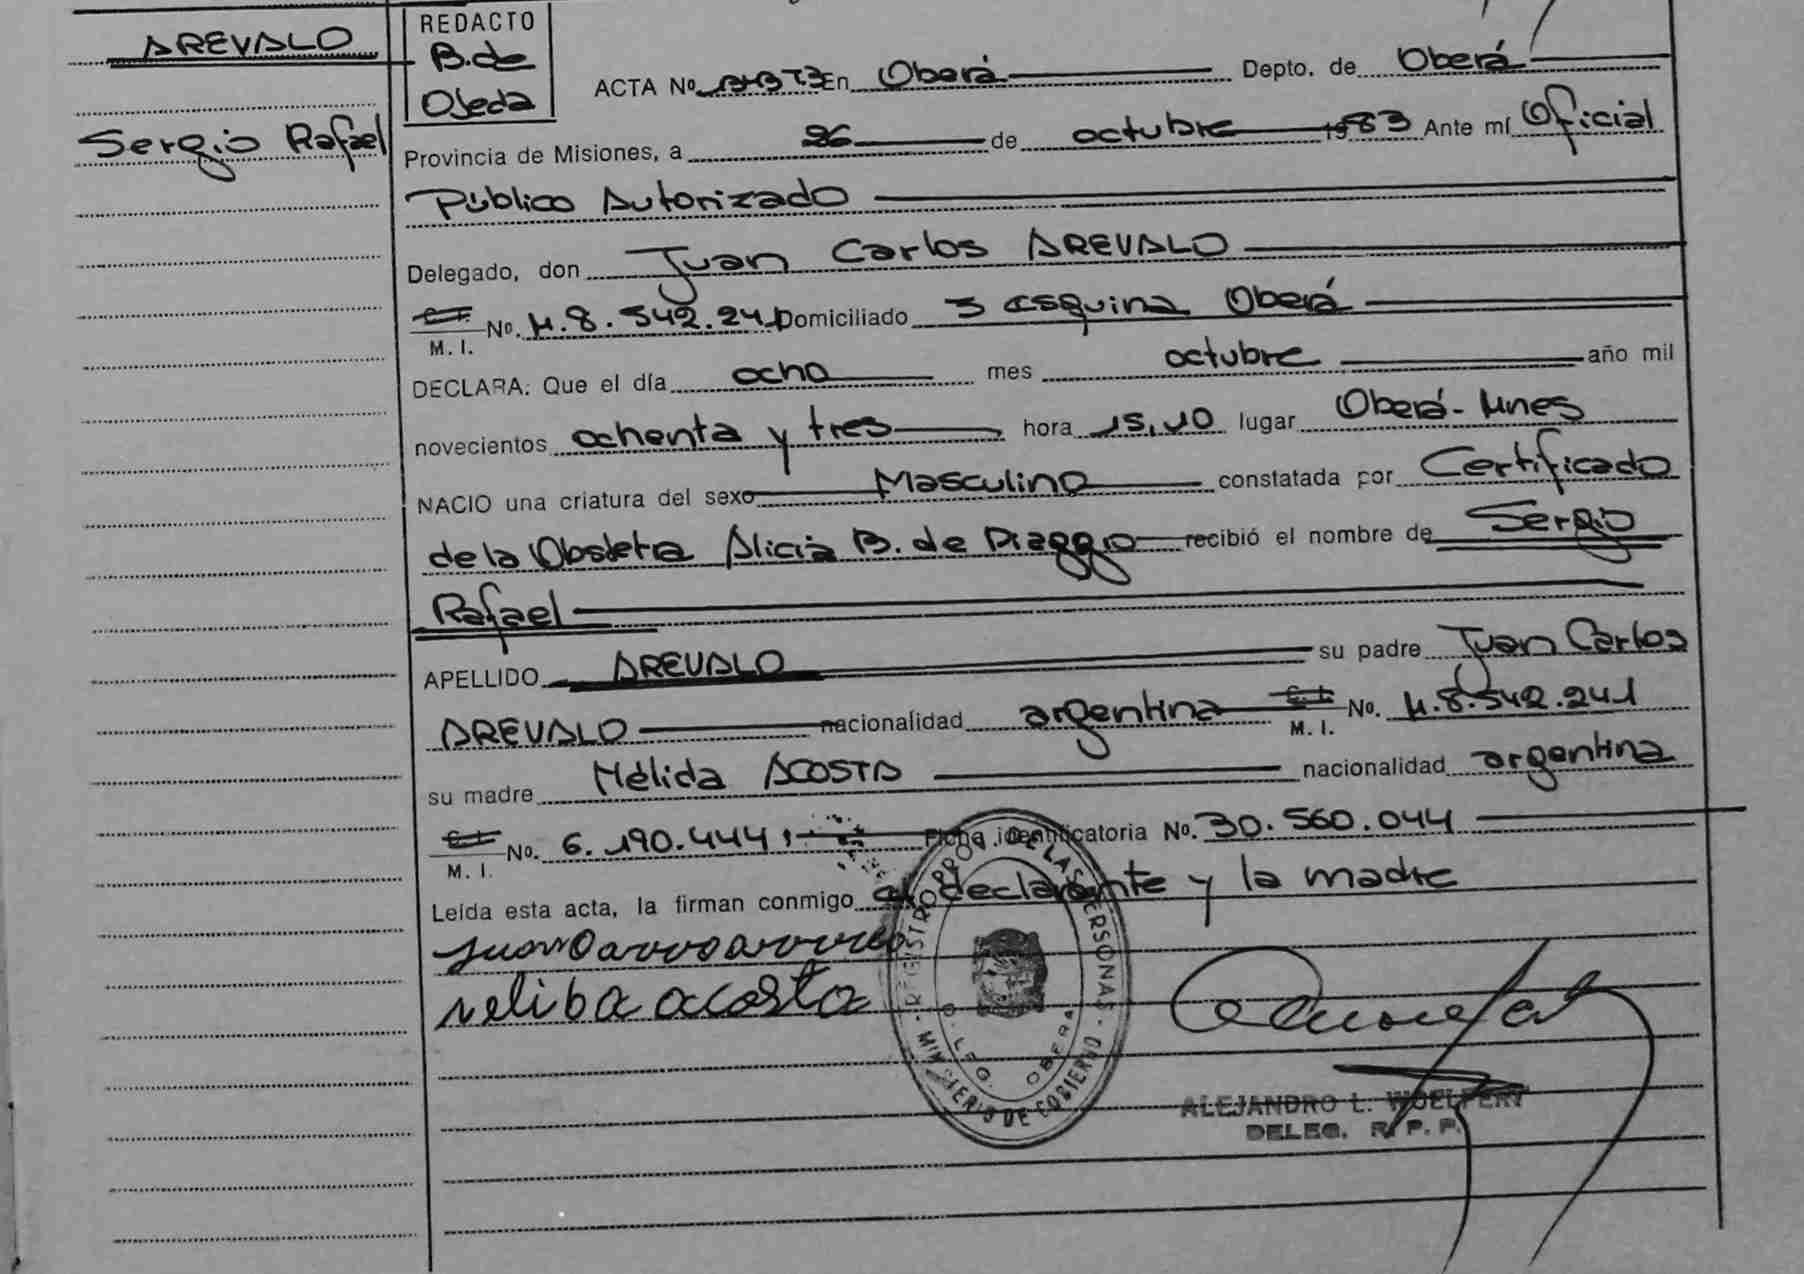 AREVALO
Sergio Rafael
REDACTO
B. de
Ojeda
ACTA No En Oberá Depto. de Oberá
Provincia de Misiones, a 26 de octubre 1983 Ante mí Oficial
Público Autorizado
Delegado, don Juan Carlos AREVALO
C. I. No. M.8.542.241 Domiciliado 3 esquina Oberá
M. I.
DECLARA: Que el día ocho mes octubre año mil
novecientos ochenta y tres hora 15,10 lugar Oberá - Mnes
NACIO una criatura del sexo Masculino constatada por Certificado
de la Obstetra Alicia B. de Piaggio recibió el nombre de Sergio
Rafael
APELLIDO AREVALO su padre Juan Carlos
AREVALO nacionalidad argentina C. I. No. M.8.542.241
M. I.
su madre Nélida ACOSTA nacionalidad argentina
C. I. No. 6.190.444, Ficha identificatoria No. 30.560.044
M. I.
Leída esta acta, la firman conmigo el declarante y la madre
neliba acosta
REGISTRO PROV. DE LAS PERSONAS - MINISTERIO DE GOBIERNO -
DELEG. OBERA
ALEJANDRO L. WOELFERT
DELEG. R. P. P.